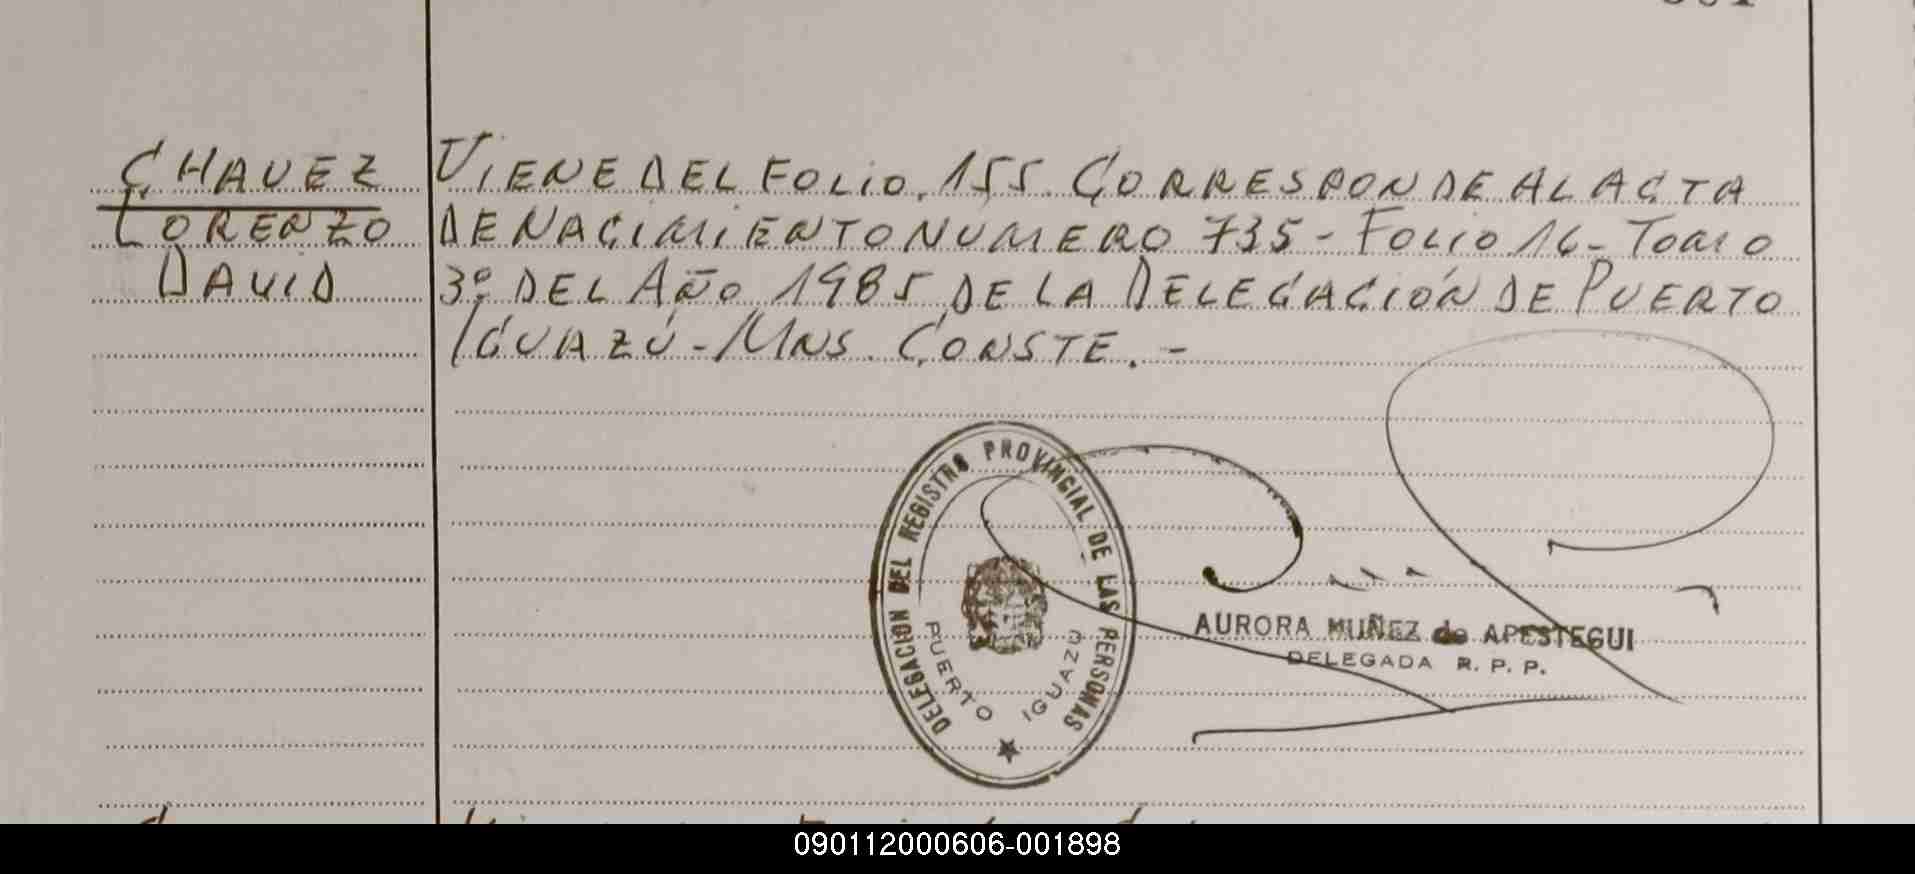 CHAVEZ
LORENZO
DAVID
VIENE DEL FOLIO. 155. CORRESPONDE AL ACTA
DE NACIMIENTO NUMERO 735 - FOLIO 16 - TOMO
3º DEL AÑO 1985 DE LA DELEGACIÓN DE PUERTO
IGUAZÚ - MNS. CONSTE. -
DELEGACION DEL REGISTRO PROVINCIAL DE LAS PERSONAS
PUERTO IGUAZU
AURORA MUÑEZ de APESTEGUI
DELEGADA R. P. P.
090112000606-001898